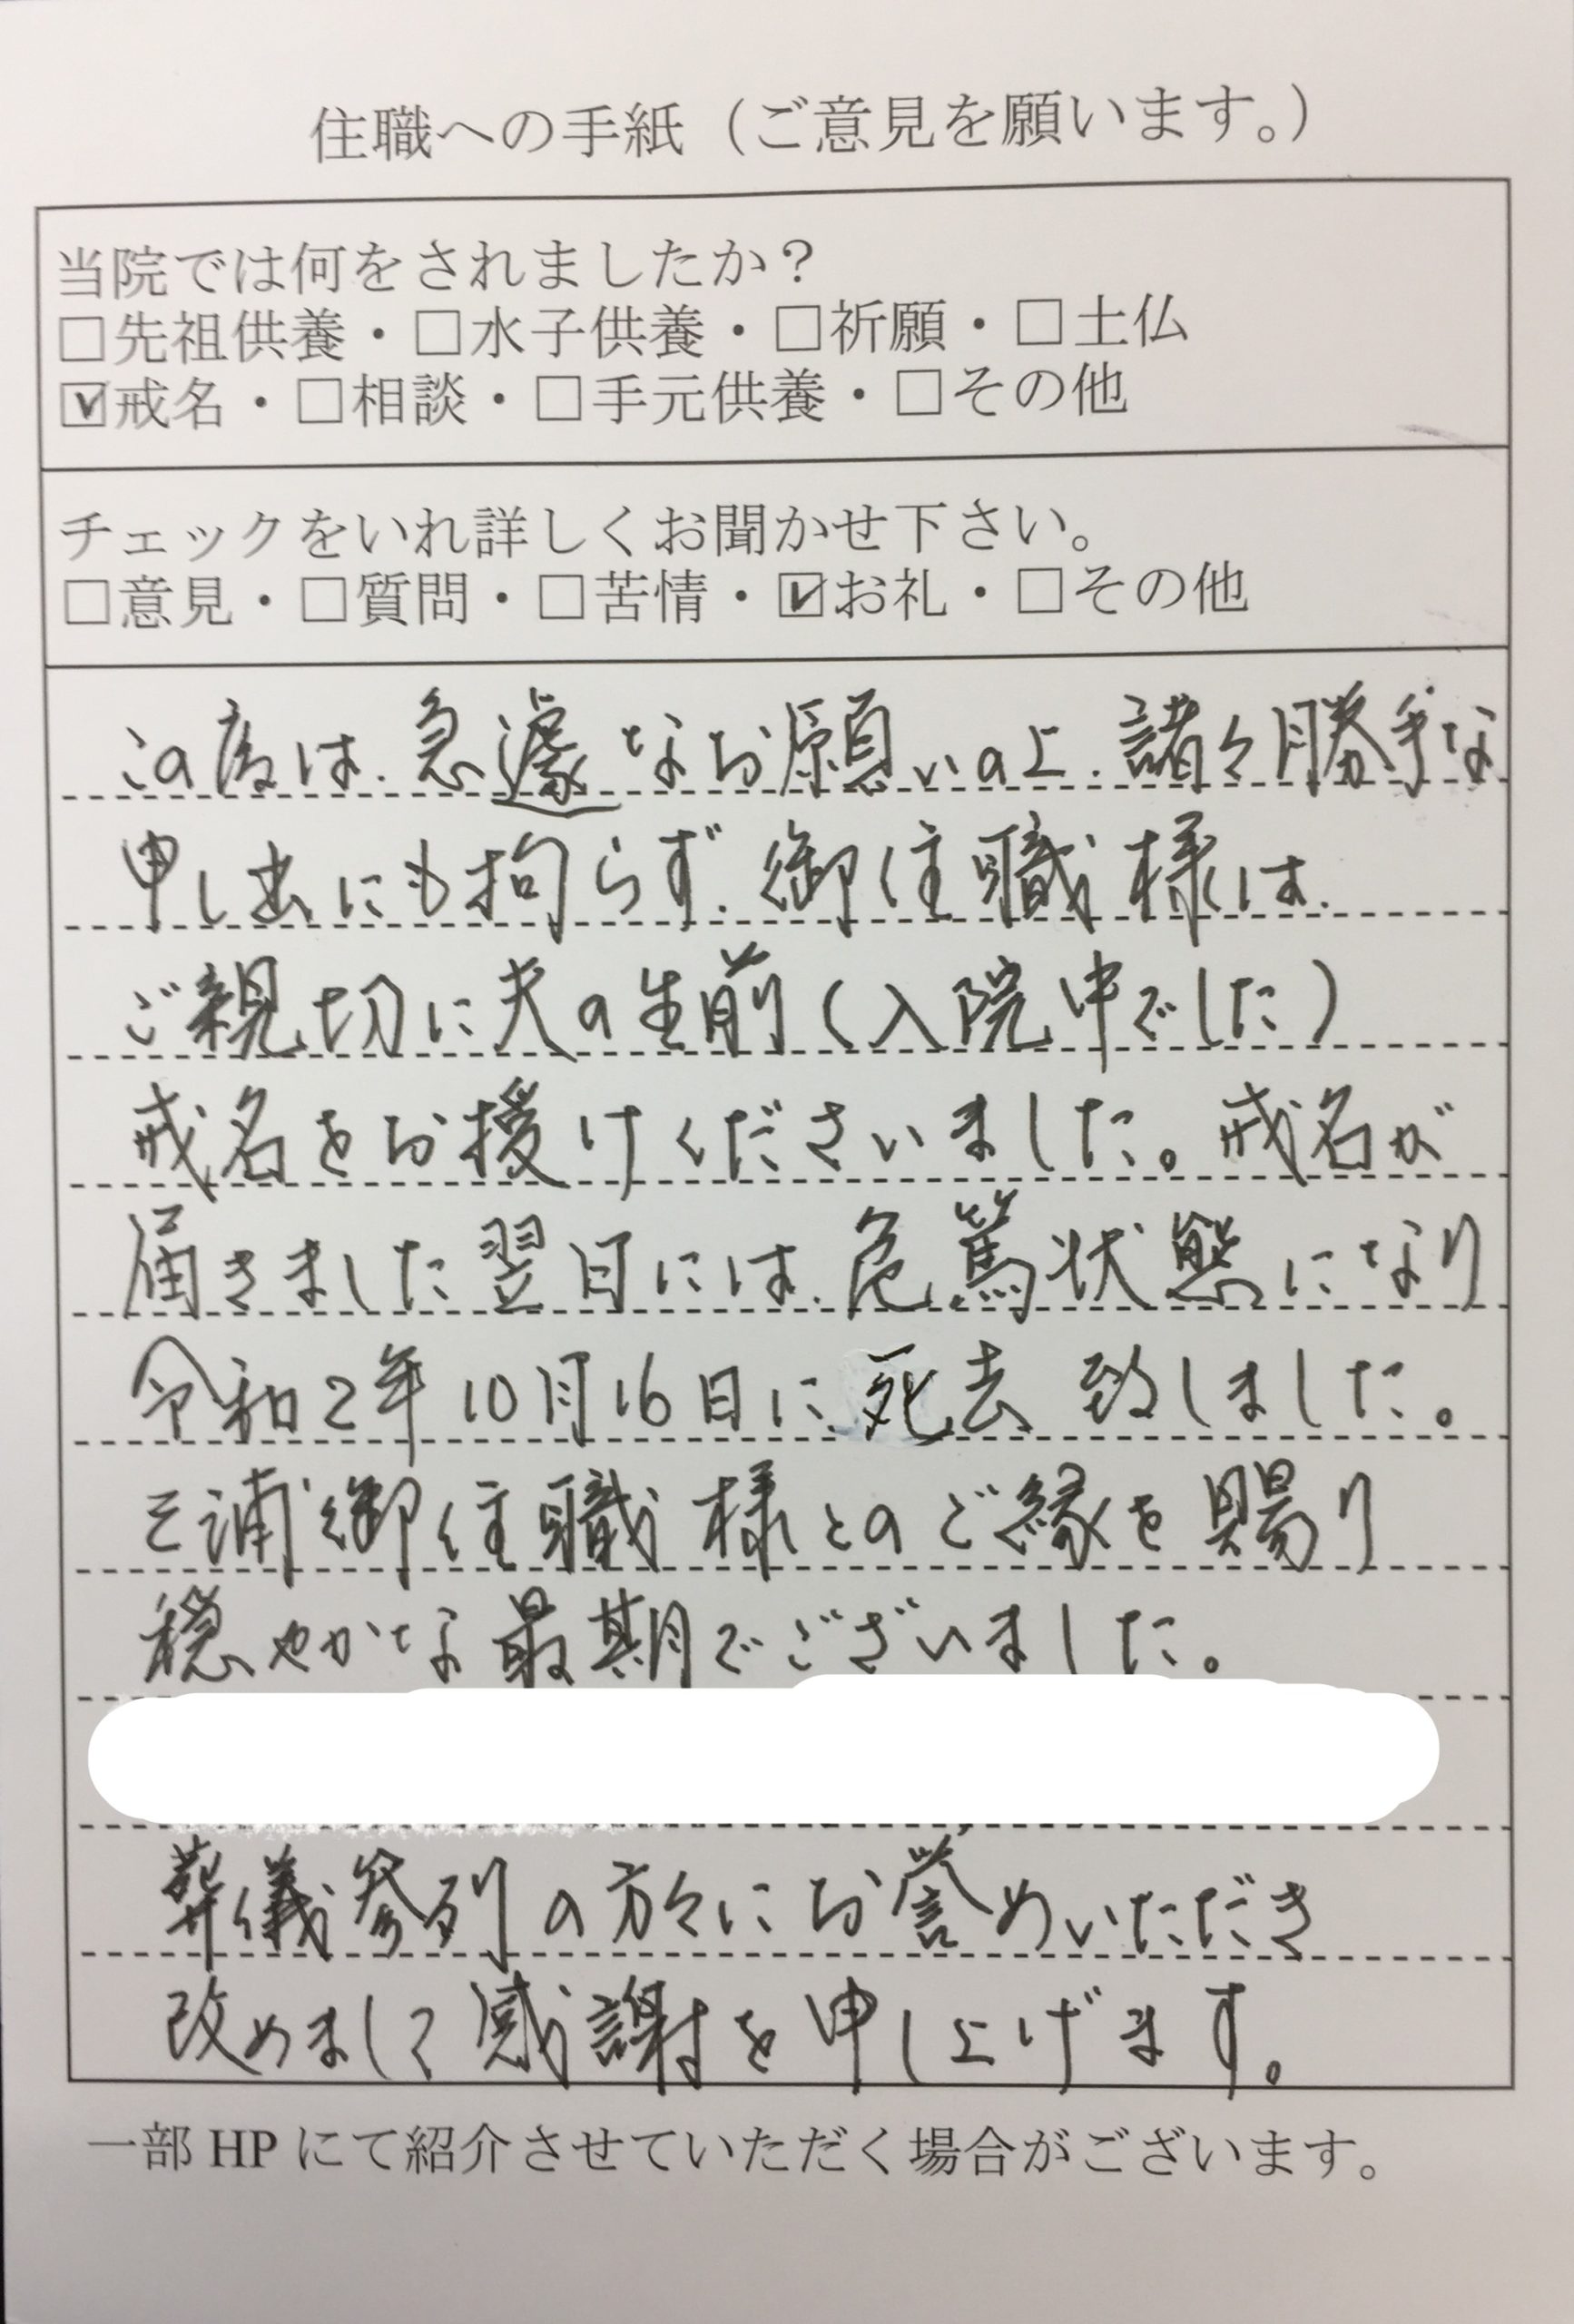 住職への手紙（ご意見を願います。）
当院では何をされましたか？
□先祖供養・□水子供養・□祈願・□土仏
☑戒名・□相談・□手元供養・□その他
チェックをいれ詳しくお聞かせ下さい。
□意見・□質問・□苦情・☑お礼・□その他
この度は、急遽なお願いの上、諸々勝手な
申し出にも拘らず、御住職様は、
ご親切に夫の生前（入院中でした）
戒名をお授けくださいました。戒名が
届きました翌日には、危篤状態になり
令和2年10月16日に死去致しました。
三浦御住職様とのご縁を賜り
穏やかな最期でございました。
葬儀参列の方々にお誉めいただき
改めまして感謝を申し上げます。
一部HPにて紹介させていただく場合がございます。